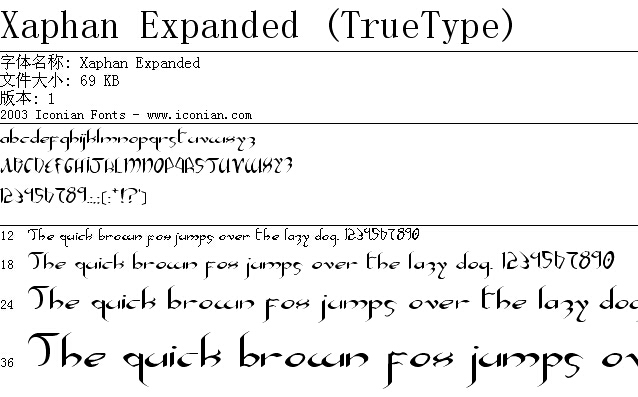 Xaphan Expanded (TrueType)
字体名称: Xaphan Expanded
文件大小: 69 KB
版本: 1
2003 Iconian Fonts - www.iconian.com
abcdefghijklmnopqrstuvwxyz
ABCDEFGHIJKLMNOPQRSTUVWXYZ
1234567890.:,;(:*!?')
12 The quick brown fox jumps over the lazy dog. 1234567890
18 The quick brown fox jumps over the lazy dog. 1234567890
24 The quick brown fox jumps over the lazy dog
36 The quick brown fox jumps ov